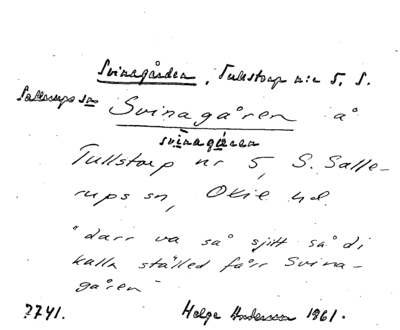 Svinagården, Tullstorp n:r 5, S.
Sallerups sn Svinagåren å
svinagåren
Tullstorp nr 5, S. Salle-
rups sn, Oxie hd.
"darr va så sjitt så di
kalla ställed fårr Svina-
gåren"
2741. Helge Andersson 1961.